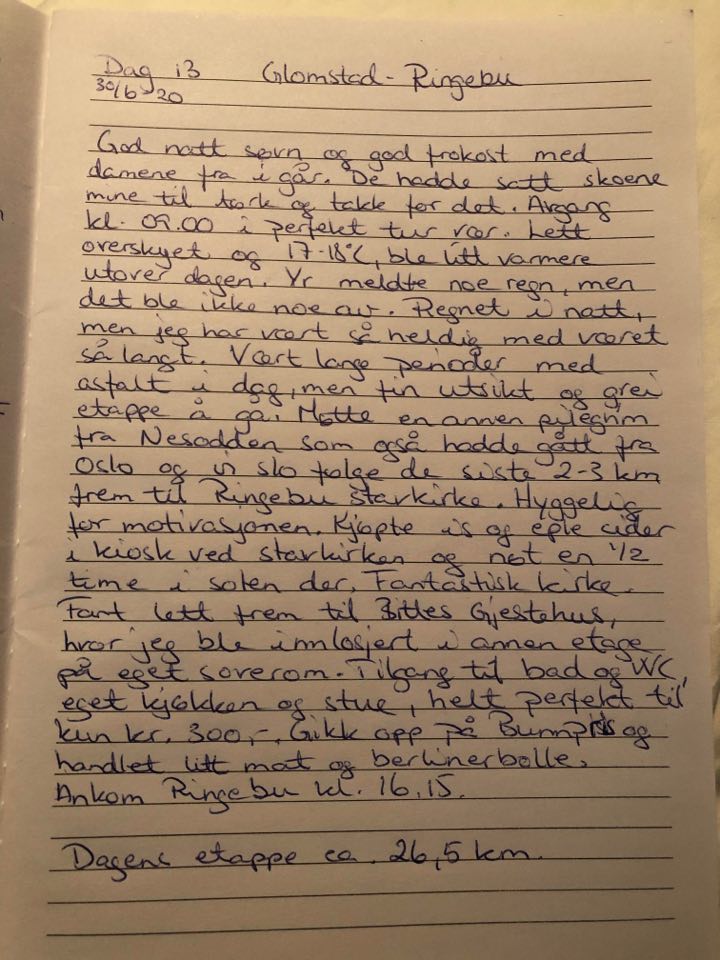 Dag 13 Glomstad - Ringebu
30/6 - 20
God natt søvn og god frokost med
damene fra i går. De hadde satt skoene
mine til tørk og takk for det. Avgang
kl. 09.00 i perfekt tur vær. Lett
overskyet og 17-18°C, ble litt varmere
utover dagen. Yr meldte noe regn, men
det ble ikke noe av. Regnet i natt,
men jeg har vært så heldig med været
så langt. Vært lange perioder med
asfalt i dag, men fin utsikt og grei
etappe å gå. Møtte en annen pilegrim
fra Nesodden som også hadde gått fra
Oslo og vi slo følge de siste 2-3 km
frem til Ringebu stavkirke. Hyggelig
for motivasjonen. Kjøpte is og eple cider
i kiosk ved stavkirken og nøt en 1/2
time i solen der. Fantastisk kirke.
Fant lett frem til Bittes Gjestehus,
hvor jeg ble innlosjert i annen etage
på eget soverom. Tilgang til bad og WC,
eget kjøkken og stue, helt perfekt til
kun kr. 300,-. Gikk opp på Bunnpris og
handlet litt mat og berlinerbolle.
Ankom Ringebu kl. 16.15.
Dagens etappe ca. 26,5 km.